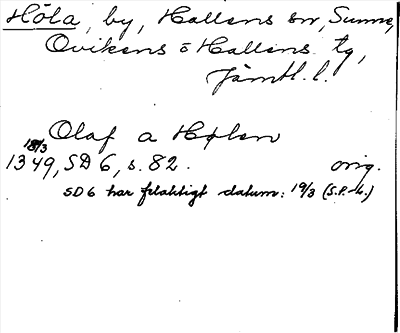 Höla, by, Hallens sn, Sunne,
Ovikens o Hallens tg,
Jämtl. l.
Olaf a Hølen
18/3
1349, SD 6, s. 82. orig.
SD 6 har felaktigt datum: 19/3 (S.P-m.)